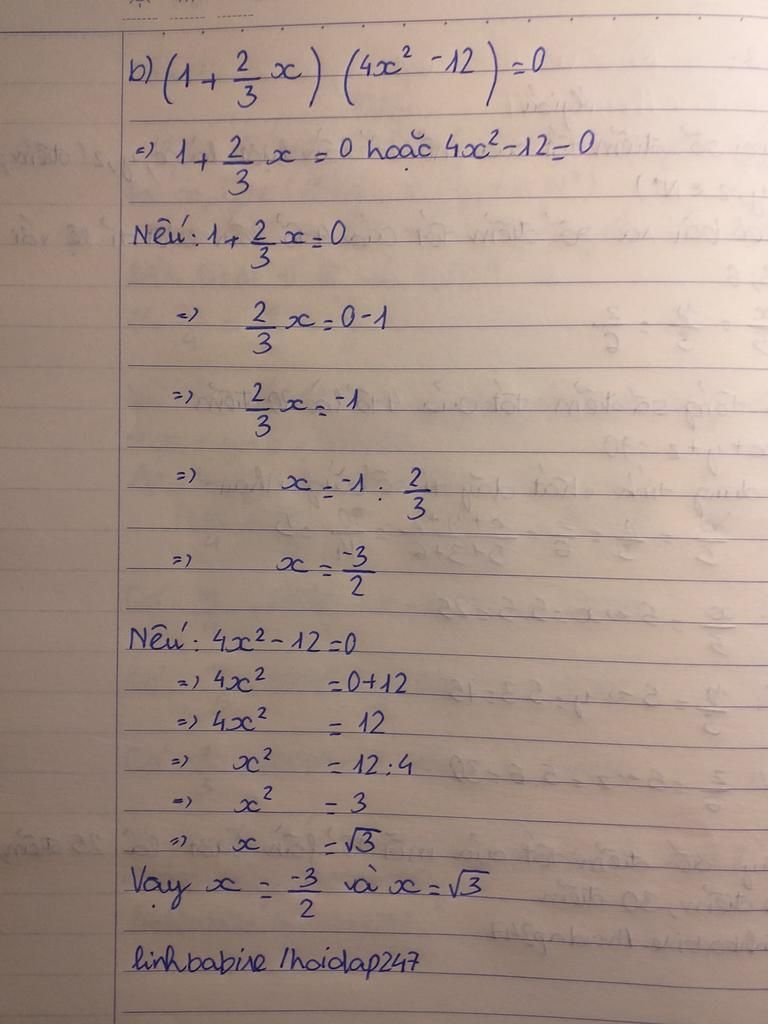 b) (1 + 2/3 x) (4x² - 12) = 0
=> 1 + 2/3 x = 0 hoặc 4x² - 12 = 0
Nếu: 1 + 2/3 x = 0
=> 2/3 x = 0 - 1
=> 2/3 x = -1
=> x = -1 : 2/3
=> x = -3/2
Nếu: 4x² - 12 = 0
=> 4x² = 0 + 12
=> 4x² = 12
=> x² = 12 : 4
=> x² = 3
=> x = √3
Vạy x = -3/2 và x = √3
linhbabire /hoidap247